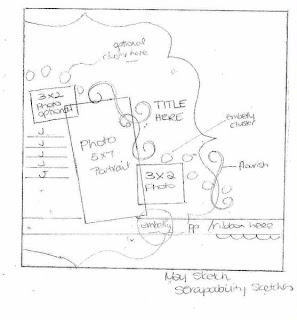 optional
cluster here
3x2
Photo
optional
TITLE
HERE
Photo
5x7
Portrait
embelly
cluster
3x2
Photo
flourish
embelly
PP /ribbon here
May Sketch
Scrapability Sketches